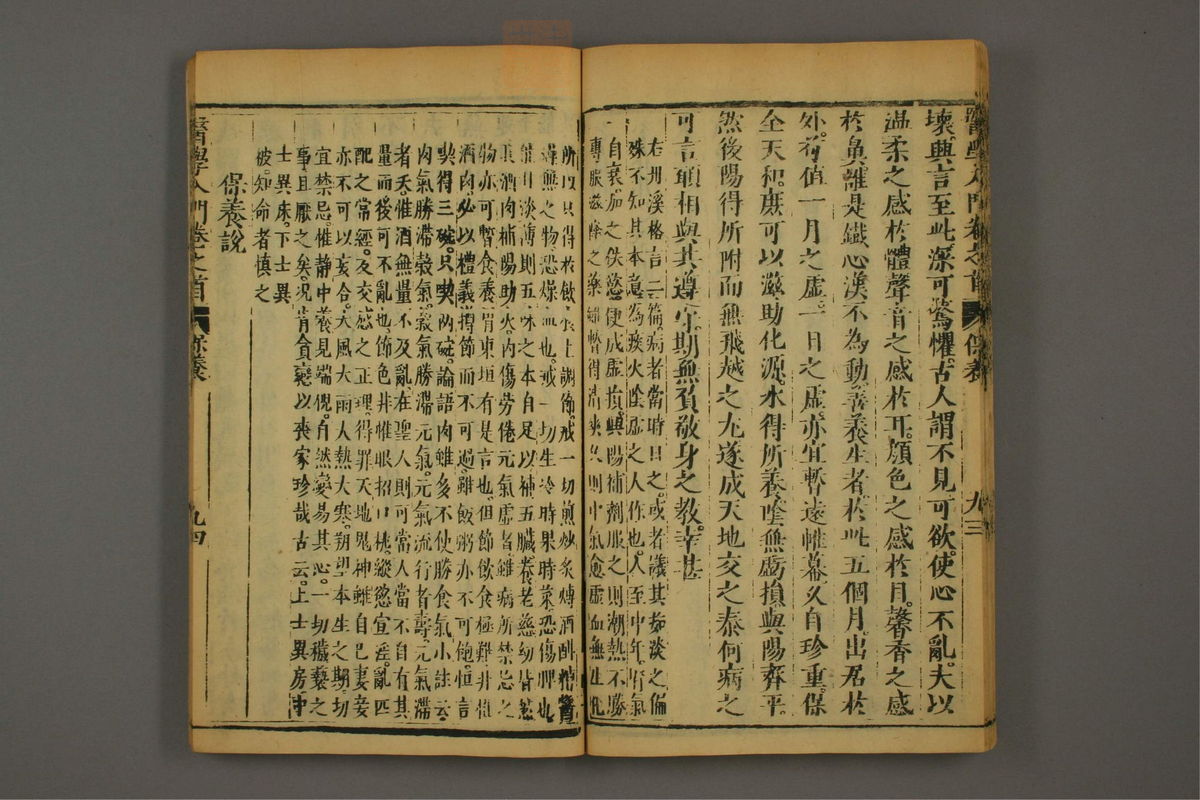 壞興言至此深可驚懼古人謂不見可欲使心不亂夫以
温柔之感於體聲音之感於耳顏色之感於目馨香之感
於鼻誰是鐵心漢不為動善養生者於此五個月出居於
外苟值一月之虛一日之虛亦宜暫遠帷幕久自珍重保
全天和庶可以滋助化源水得所養陰無虧損與陽齊平
然後陽得所附而無飛越之尢遂成天地交之泰何病之
可言願相與其遵守期無負敬身之教幸甚
右丹溪格言二篇病者當時目之或者議其茹淡之偏
殊不知其本意為痰火陰虛之人作也人至中年腎氣
自衰加之佚慾便成虛損與陽補劑服之則潮熱不勝
專服滋降之藥雖暫得清爽久則中氣愈虛血無生化
所以只得於飲食上調停戒一切煎炒炙煿酒酣糟醬
燥熱之物恐燥血也戒一切生冷時果時菜恐傷脾也
能甘淡薄則五味之本自足以補五臟養老慈幼皆然
其酒肉補陽助火內傷勞倦元氣虛者雖病所禁忌之
物亦可暫食養胃東垣有是言也但節飲食極難非惟
酒肉必以禮義撙節而不可過雖飯粥亦不可飽恒言
喫得三碗只喫兩碗論語肉雖多不使勝食氣小註云
肉氣勝滯穀氣穀氣勝滯元氣元氣流行者壽元氣滯
者夭惟酒無量不及亂在聖人則可當人當不自有其
量而後可不亂也節色非惟眼招口挑縱慾宣淫亂匹
配之常經及交感之正理得罪天地鬼神雖自己妻妾
亦不可以妄合大風大雨大熱大寒朔望本生之期切
宜禁忌惟靜中養見端倪自然變易其心一切穢褻之
事且厭之矣况肯貪戀以喪家珍哉古云上士異房中
士異床下士異
被知命者慎之
保養說
醫學入門卷之首
保養
九三
醫學入門卷之首
保養
九四